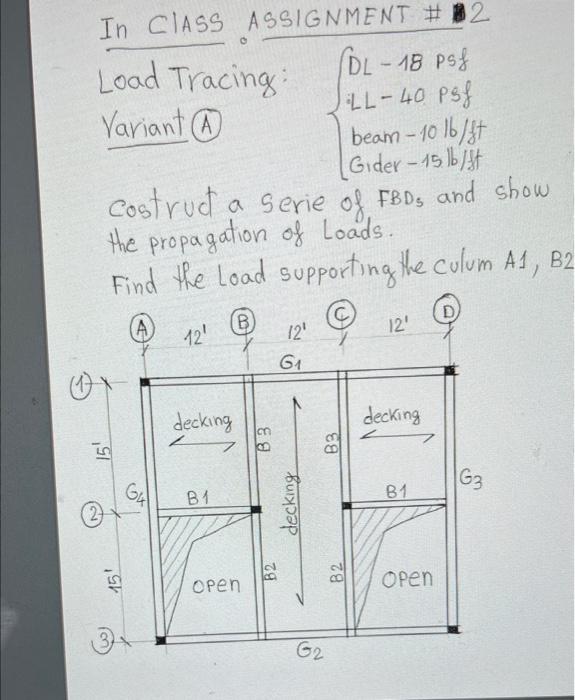 In ClASS ASSIGNMENT # 2
Load Tracing:
DL - 18 psf
LL - 40 psf
Variant A
beam - 10 lb/ft
Gider - 15 lb/ft
Costruct a serie of FBDs and show
the propagation of Loads.
Find the Load supporting the culum A1, B2
A 12' B 12' C 12' D
G1
1
decking
decking
B3
B3
15'
decking
G4
G3
B1
B1
2
15'
open
B2
B2
open
3
G2